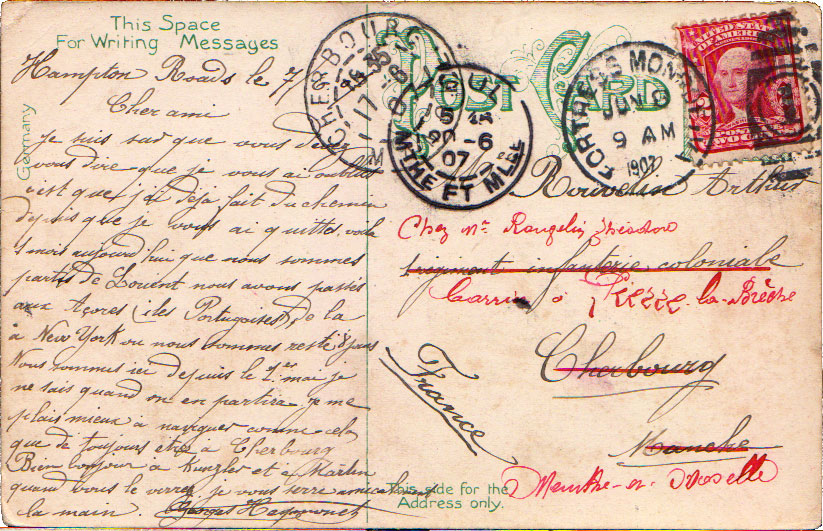 This Space
For Writing Messages
Germany
POST CARD
Hampton Roads le 7
Cher ami
Je suis sur que vous devez
vous dire que je vous ai oublié
c'est que j'ai déjà fait du chemin
depuis que je vous ai quitté, voilà
1 mois aujourd'hui que nous sommes
partis de Lorient nous avons passés
aux Açores (iles Portugaises), de la
à New York ou nous sommes resté 8 jours
Nous sommes ici depuis le 1er mai je
ne sais quand on en partira. Je me
plais mieux à naviguer comme cela
que de toujours etre à Cherbourg
Bien bonjour à Kunzler et à Martin
quand vous le verrez je vous serre amicalement
la main. Georges
CHERBOURG
MTHE ET MLLE
20-6
07
FORTRESS MONROE
JUN 9
9 AM
1907
UNITED STATES
OF AMERICA
POSTAGE
TWO CENTS
Rouvelin Arthur
Chez Mr Rougelin Théodore
1 régiment infanterie coloniale
à Pierre-la-Brèche
Cherbourg
France
Manche
Meurthe-et-Moselle
This side for the
Address only.